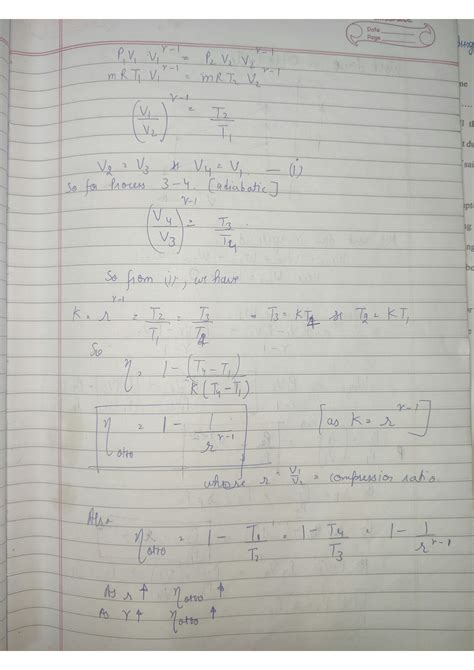 Date
Page
P₁V₁ V₁^γ-1 = P₂ V₂ V₂^γ-1
mRT₁ V₁^γ-1 = mRT₂ V₂^γ-1
(V₁/V₂)^γ-1 = T₂/T₁
V₂ = V₃ & V₄ = V₁ — (i)
So for Process 3-4. [adiabatic]
(V₄/V₃)^γ-1 = T₃/T₄
So from (i), we have
K = r^γ-1 = T₂/T₁ = T₃/T₄ ⇒ T₃ = KT₄ & T₂ = KT₁
So
η = 1 - (T₄-T₁)/K(T₄-T₁)
η otto = 1 - 1/r^γ-1 [as K = r^γ-1]
where r = V₁/V₂ = compression ratio
Also
η otto = 1 - T₁/T₂ = 1 - T₄/T₃ = 1 - 1/r^γ-1
As r ↑ η otto ↑
As γ ↑ η otto ↑